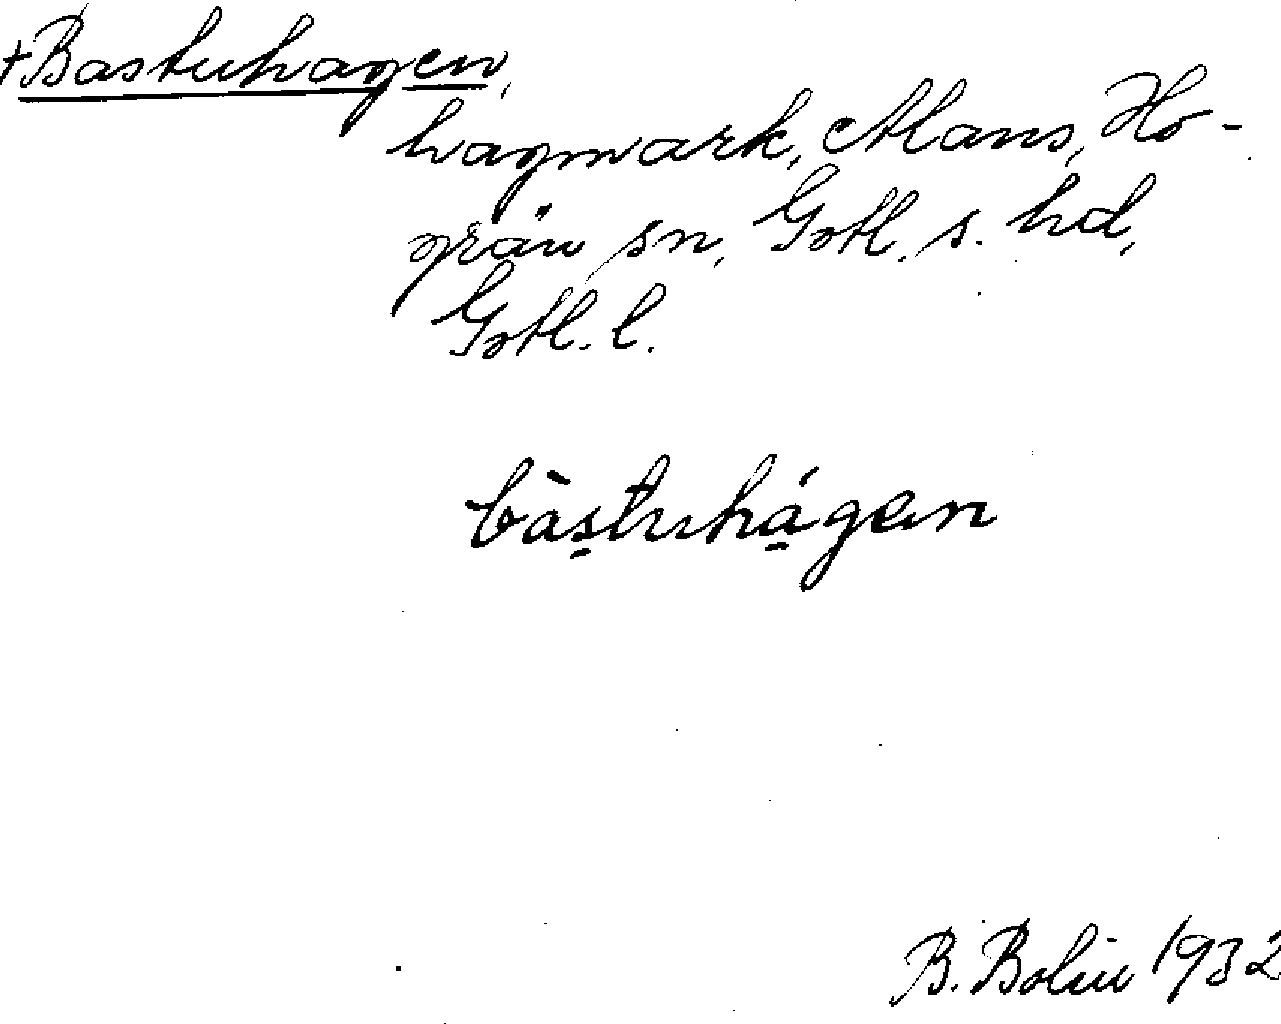 +Bastuhagen,
hagmark, Mans, Ho-
grän sn, Gotl. s. hd,
Gotl. l.
bàstuhágen
B. Bolin 1932